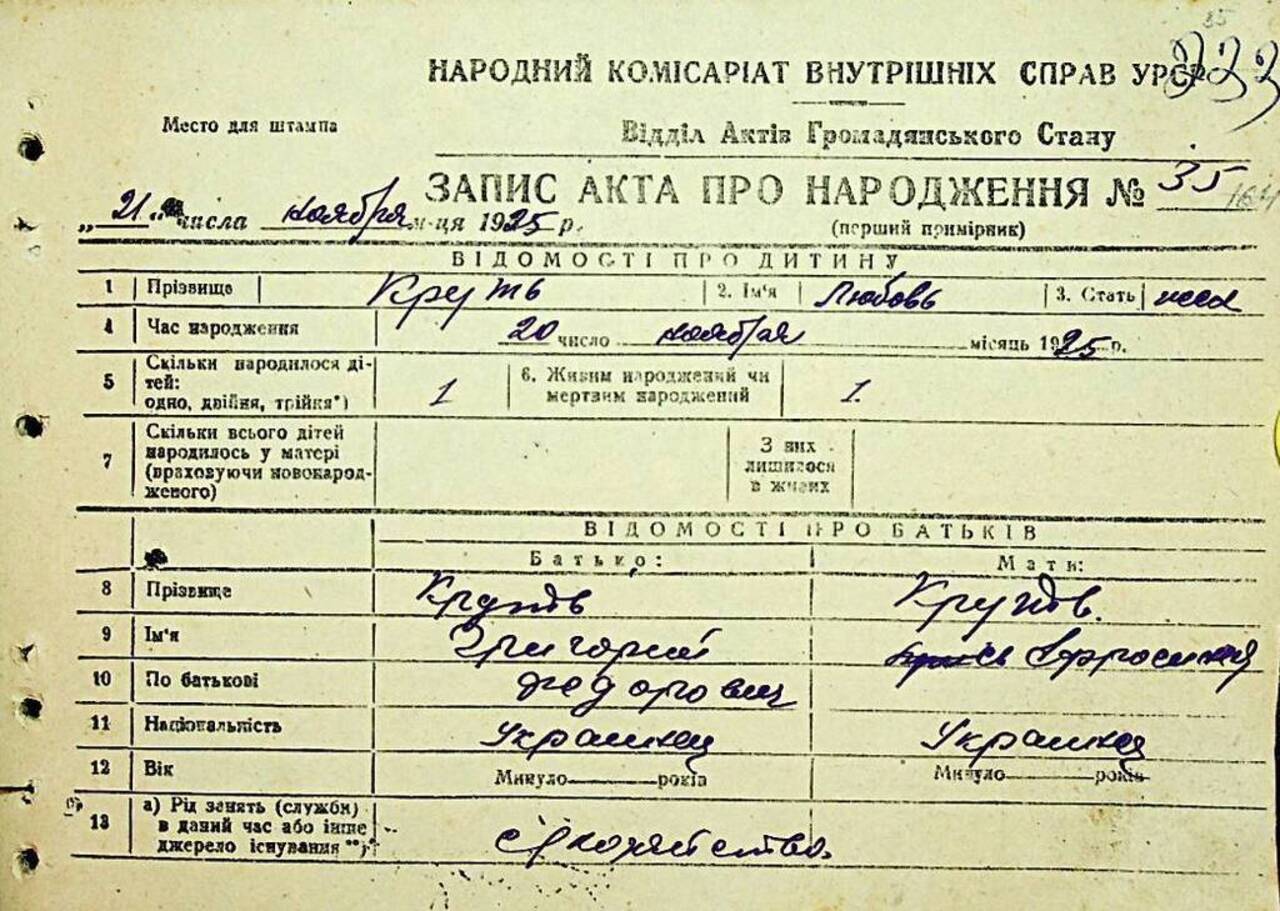 35
333
НАРОДНИЙ КОМІСАРІАТ ВНУТРІШНІХ СПРАВ УРСР
Место для штампа
Відділ Актів Громадянського Стану
ЗАПИС АКТА ПРО НАРОДЖЕННЯ № 35 164
„21“ числа ноября м-ця 1925 р.
(перший примірник)
ВІДОМОСТІ ПРО ДИТИНУ
1 Прізвище Круть 2. Ім'я Любовь 3. Стать жен
4 Час народження 20 число ноября місяць 1925 р.
5 Скільки народилося дітей: одно, двійня, трійня*) 1 6. Живим народжений чи мертвим народжений 1.
7 Скільки всього дітей народилось у матері (враховуючи новонародженого) З них лишилося в живих
ВІДОМОСТІ ПРО БАТЬКІВ
Батько: Мати:
8 Прізвище Круть Круть.
9 Ім'я Григорий Ефросиния
10 По батькові Федорович
11 Національність Украинец Украинец
12 Вік Минуло років Минуло років
13 а) Рід занять (служби) в даний час або інше джерело існування **)